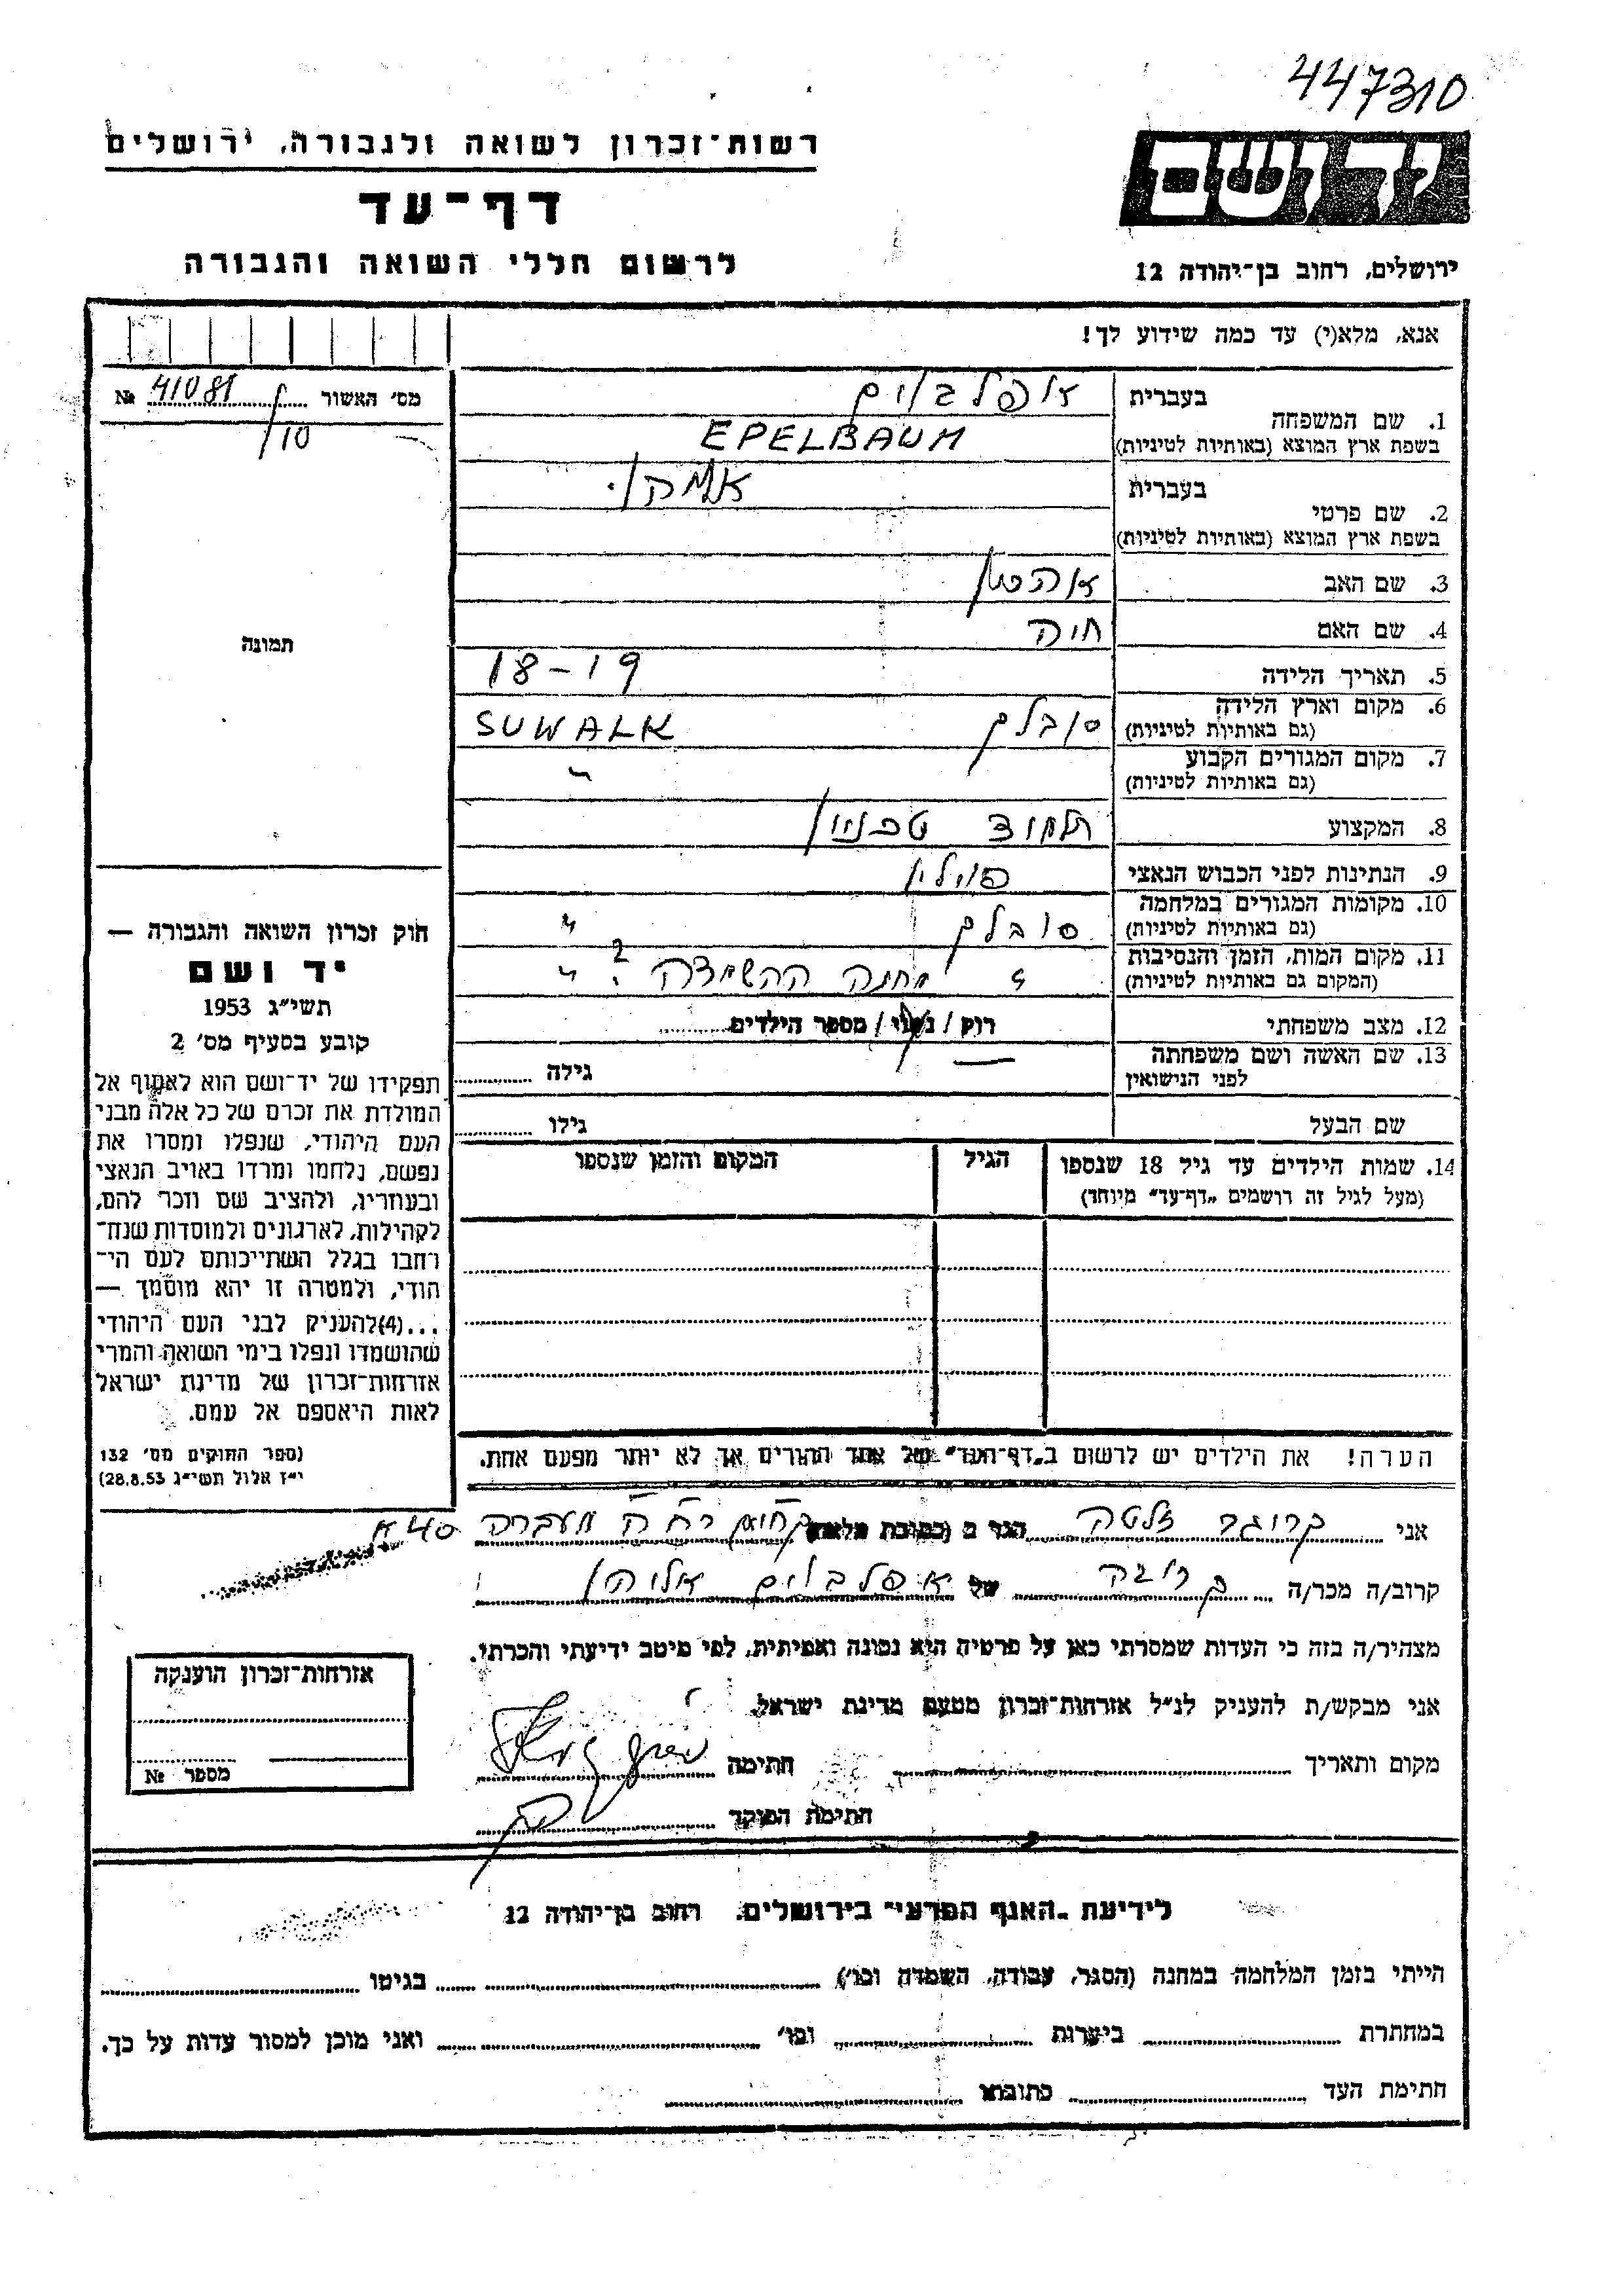 447310
רשות־זכרון לשואה ולגבורה, ירושלים
יד ושם
דף־עד
לרשום חללי השואה והגבורה
ירושלים, רחוב בן־יהודה 12
אנא, מלא(י) עד כמה שידוע לך!
מס׳ האשור 41081 №
/10
1. שם המשפחה
בעברית
בשפת ארץ המוצא (באותיות לטיניות)
EPELBAUM
2. שם פרטי
בעברית
בשפת ארץ המוצא (באותיות לטיניות)
3. שם האב
4. שם האם חיה
5. תאריך הלידה 18-19
6. מקום וארץ הלידה
(גם באותיות לטיניות) סובלק SUWALK
7. מקום המגורים הקבוע
(גם באותיות לטיניות) "
8. המקצוע טכניון
9. הנתינות לפני הכבוש הנאצי פולין
10. מקומות המגורים במלחמה
(גם באותיות לטיניות) סובלק "
11. מקום המות, הזמן והנסיבות
(המקום גם באותיות לטיניות) " מחנה ההשמדה ? "
12. מצב משפחתי רוק / נשוי / מספר הילדים
13. שם האשה ושם משפחתה
לפני הנישואין — גילה
שם הבעל גילו
14. שמות הילדים עד גיל 18 שנספו
(מעל לגיל זה רושמים „דף־עד" מיוחד)
הגיל
המקום והזמן שנספו
הערה! את הילדים יש לרשום ב„דף־העד" של אחד ההורים אך לא יותר מפעם אחת.
תמונה
חוק זכרון השואה והגבורה —
יד ושם
תשי״ג 1953
קובע בסעיף מס׳ 2
תפקידו של יד־ושם הוא לאסוף אל
המולדת את זכרם של כל אלה מבני
העם היהודי, שנפלו ומסרו את
נפשם, נלחמו ומרדו באויב הנאצי
ובעוזריו, ולהציב שם וזכר להם,
לקהילות, לארגונים ולמוסדות שנח־
רחבו בגלל השתייכותם לעם הי־
הודי, ולמטרה זו יהא מוסמך —
...(4)להעניק לבני העם היהודי
שהושמדו ונפלו בימי השואה והמרי
אזרחות־זכרון של מדינת ישראל
לאות היאספם אל עמם.
(ספר החוקים מס׳ 132
י״ז אלול תשי״ג 28.8.53)
אני זלטה הגר ב (כתובת מלאה) מעברה 40
קרוב/ה מכר/ה קרובה של
מצהיר/ה בזה כי העדות שמסרתי כאן על פרטיה היא נכונה ואמיתית, לפי מיטב ידיעתי והכרתי.
אני מבקש/ת להעניק לנ״ל אזרחות־זכרון מטעם מדינת ישראל.
מקום ותאריך חתימה
חתימת הפוקד
אזרחות־זכרון הוענקה
מספר №
לידיעת „האגף המדעי" בירושלים, רחוב בן־יהודה 12
הייתי בזמן המלחמה במחנה (הסגר, עבודה, השמדה וכו׳) בגיטו
במחתרת ביערות וכו׳ ואני מוכן למסור עדות על כך.
חתימת העד כתובתו